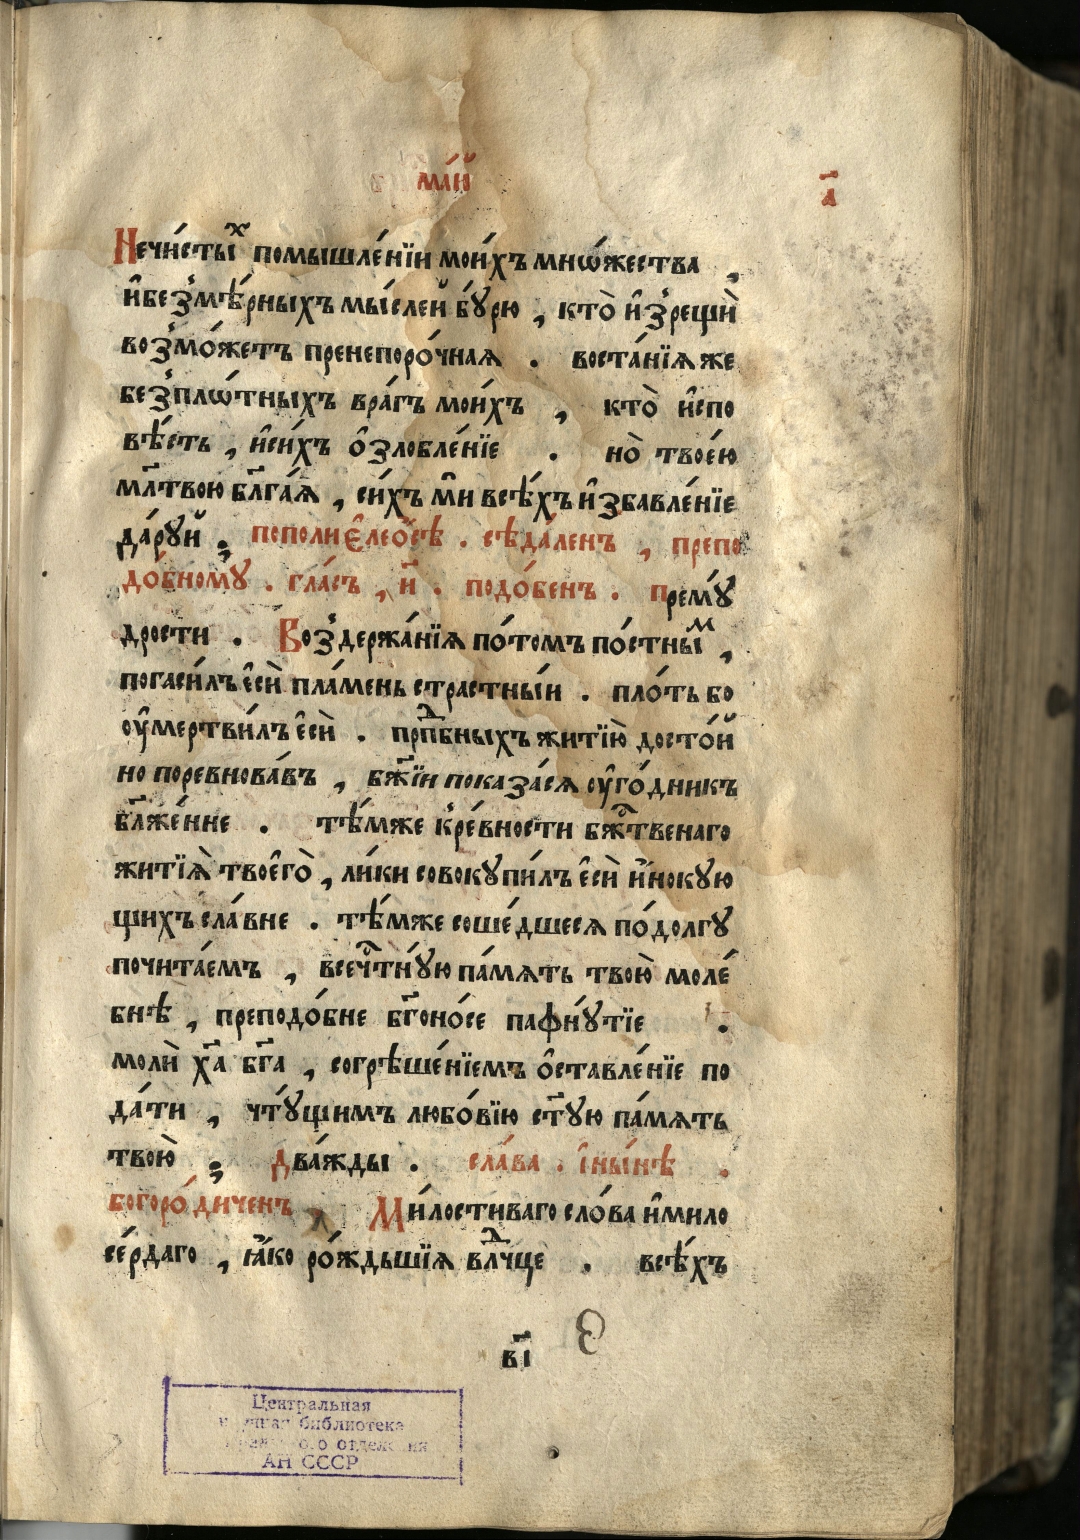 ма́й
а҃
Нечи́сты́х помышле́нїи мои́хъ мнѡ́жества ,
и҆без̾мѣ́рныхъ мы́слей бу́рю , кто̀ и҆з̾рещѝ
воз̾мо́жетъ пренепоро́чная . воста́нїя же
без̾плѡ́тныхъ вра́гъ мои́хъ , кто̀ и҆спо
вѣ́сть , и҆си́хъ ѻ҆зловле́нїе . но̀ твое́ю
мл҃твою бл҃га́я , си́хъ мѝ всѣ́хъ и҆збавле́нїе
да́руй ; пополиєлео́сѣ . сѣда́ленъ , препо
до́бному . гла́съ , и҃ . подо́бенъ . прему́
дрости . Воз̾держа́нїя по́томъ по́стны́м ,
погаси́лъ є҆сѝ пла́мень страстны́и . пло́ть бо
оу҆мертви́лъ є҆сѝ . прпⷣбныхъ житїю̀ досто́й
но поревнова́въ , бж҃їи показа́ся оу҆го́дникъ
бл҃же́нне . тѣ́мже к̾ре́вности бжⷭ҇твенаго
житїя̀ твоего̀ , ли́ки совокупи́лъ є҆сѝ и҆́нокую
щихъ сла́вне . тѣ́мже соше́дшеся по́долгу
почита́емъ , всечⷭ҇тну́ю па́мять твою̀ моле́
бнѣ , преподо́бне бг҃оно́се пафну́тїе .
молѝ хⷭ҇а бг҃а , согрѣше́нїемъ ѻ҆ставле́нїе по
да́ти , чту́щимъ любо́вїю ст҃ую па́мять
твою̀ ; два́жды . сла́ва . и҆ны́нѣ .
богоро́диченъ Ми́лостиваго сло́ва и҆мило
се́рдаго , ꙗ҆́ко ро́ждьшїя влⷣчце . всѣ́хъ
в҃і
Центральная
научная библиотека
отделения
АН СССР